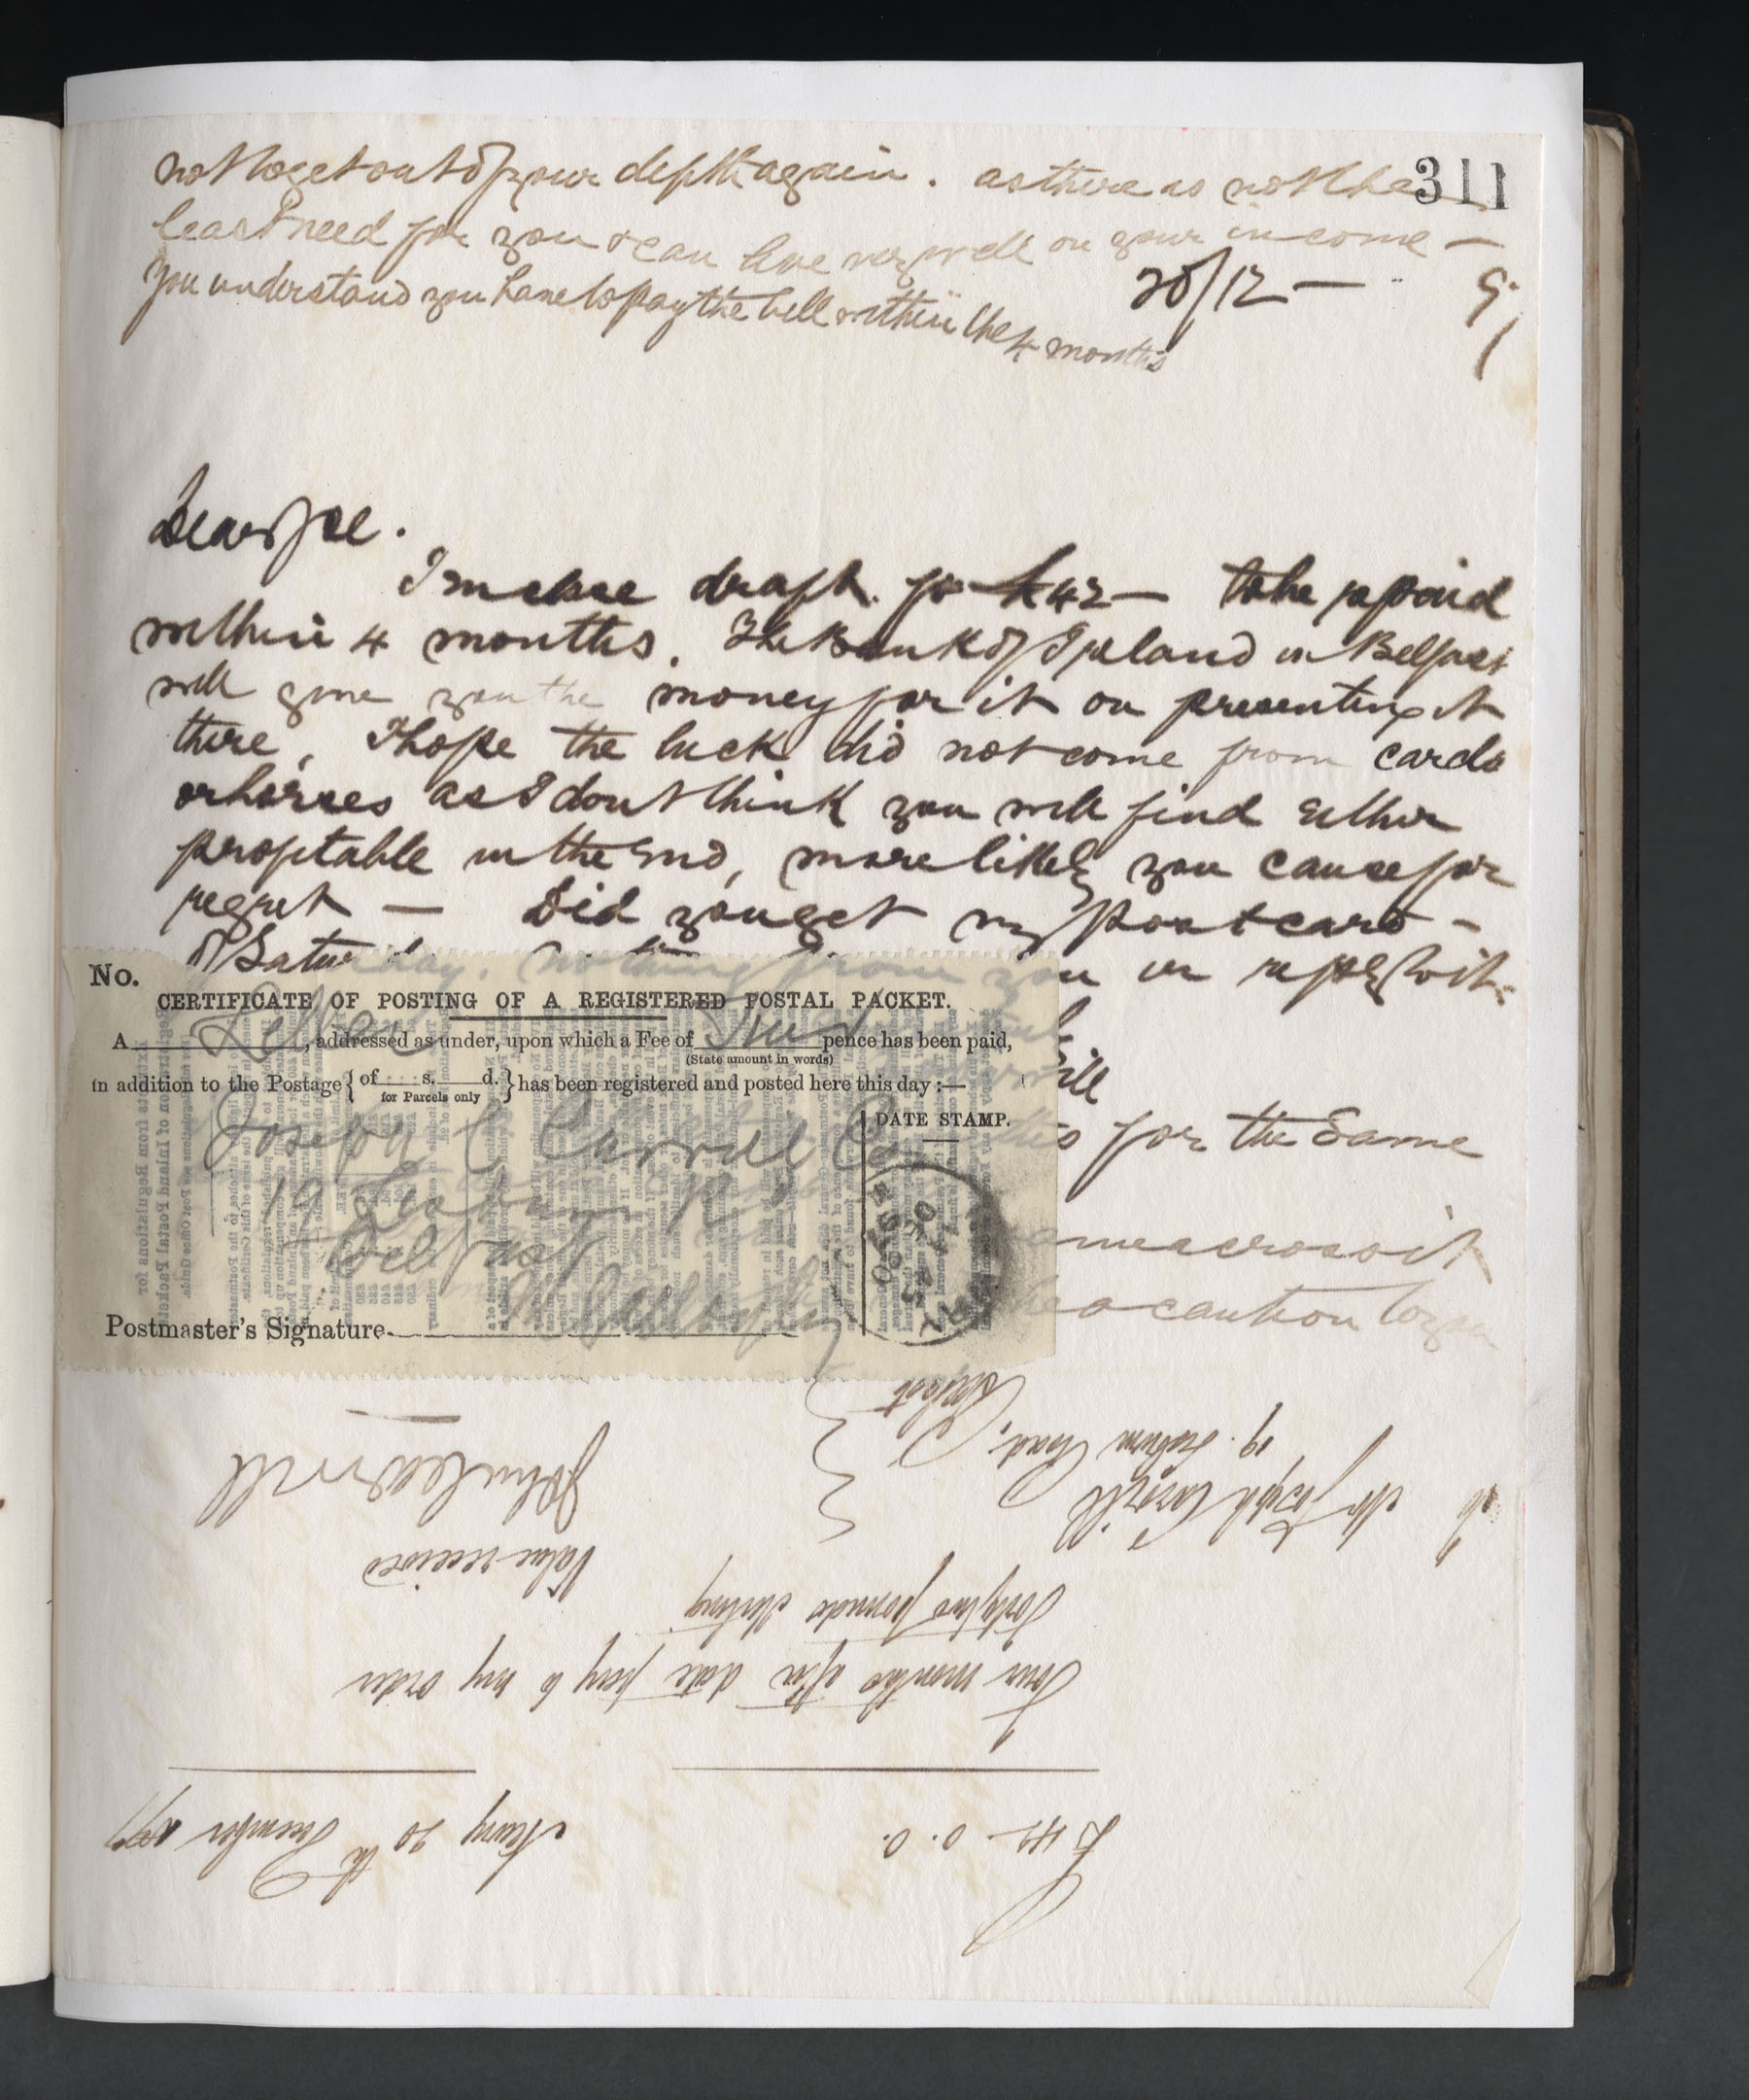 311
not to get out of your depth again. as there is not the
least need for you & can live very well on your income —
20/12 —
you understand you have to pay the bill within the 4 months
Dear Joe.
I enclose draft for £42 — to be repaid
within 4 months. The Bank of Ireland in Belfast
will give you the money for it on presenting it
there, I hope the luck did not come from cards
or horses as I dont think you will find either
profitable in the end, more likely you cause for
regret — Did you get my post card —
of Saturday. nothing from you in reply
No.
CERTIFICATE OF POSTING OF A REGISTERED POSTAL PACKET.
A Letter, addressed as under, upon which a Fee of Two pence has been paid,
(State amount in words)
in addition to the Postage { of s. d. } has been registered and posted here this day :—
for Parcels only
DATE STAMP.
Joseph C Carvill
19 Lisburn Rd
Belfast
Postmaster's Signature
for the same
across it
a caution to you
£42. 0. 0.
Newry 20th December 1897
Four months after date pay to my order
Forty two pounds sterling
Value received
To Mr Joseph Carvill
19. Lisburn Road,
Belfast
John Carvill